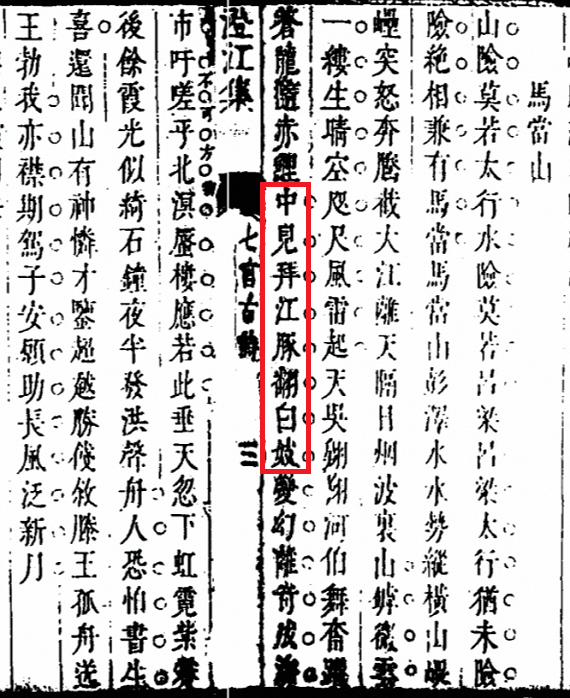 馬當山
山險莫若太行水險莫若呂梁呂梁太行猶未險
險絶相兼有馬當馬當山彭澤水水勢縱橫山崛
突怒奔騰截大江離天隔日烟波裏山罅微雲
一縷生晴空咫尺風雷起天吳翱翔河伯舞奮躍
蒼龍隨赤鯉中見拜江豚翻白妓變幻離奇成海
澄江集
七言古詩
三
市吁嗟乎北溟蜃樓應若此垂天忽下虹霓紫
不可方物
後餘霞光似綺石鐘夜半發洪聲舟人恐怕書生
喜還聞山有神憐才鑒超越勝倐攸滕王孤舟送
王勃我亦襟期駕子安願助長風泛新月